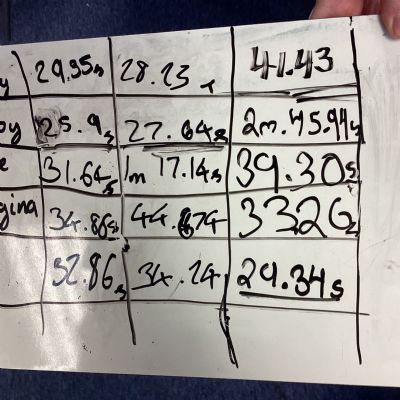 y 29.95s 28.23s 41.43
oy 25.9s 27.64s 2m.45.94s
e 31.64s 1m 17.14s 39.30s
gina 34.86s 44.874 33.26s
32.86s 34.24 29.34s